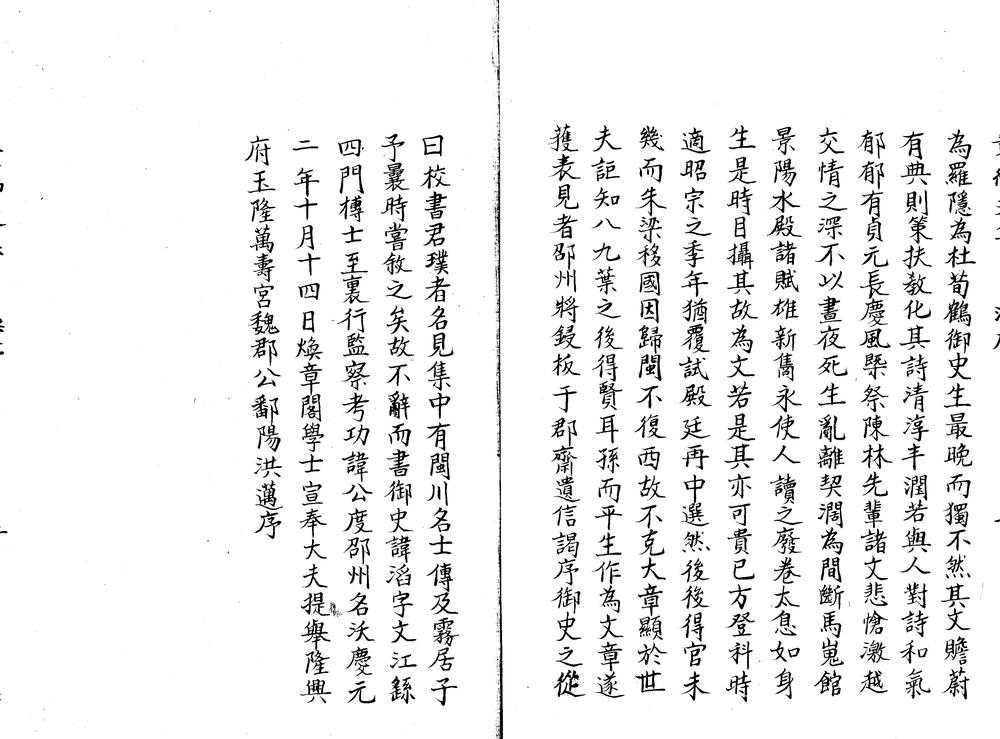 為羅隱為杜荀鶴御史生最晚而獨不然其文贍蔚
有典則策扶教化其詩清淳丰潤若與人對詩和氣
郁郁有貞元長慶風槩祭陳林先輩諸文悲愴激越
交情之深不以晝夜死生亂離契濶為間斷馬嵬館
景陽水殿諸賦雄新雋永使人讀之廢卷太息如身
生是時目攝其故為文若是其亦可貴已方登科時
適昭宗之季年猶覆試殿廷再中選然後後得官未
幾而朱梁移國因歸閩不復西故不克大章顯於世
夫詎知八九葉之後得賢耳孫而平生作為文章遂
獲表見者邵州將鋟板于郡齋遺信謁序御史之從
曰校書君璞者名見集中有閩川名士傳及霧居子
予曩時嘗敘之矣故不辭而書御史諱滔字文江繇
四門博士至裏行監察考功諱公度邵州名沃慶元
二年十月十四日煥章閣學士宣奉大夫提舉隆興
府玉隆萬壽宮魏郡公鄱陽洪邁序